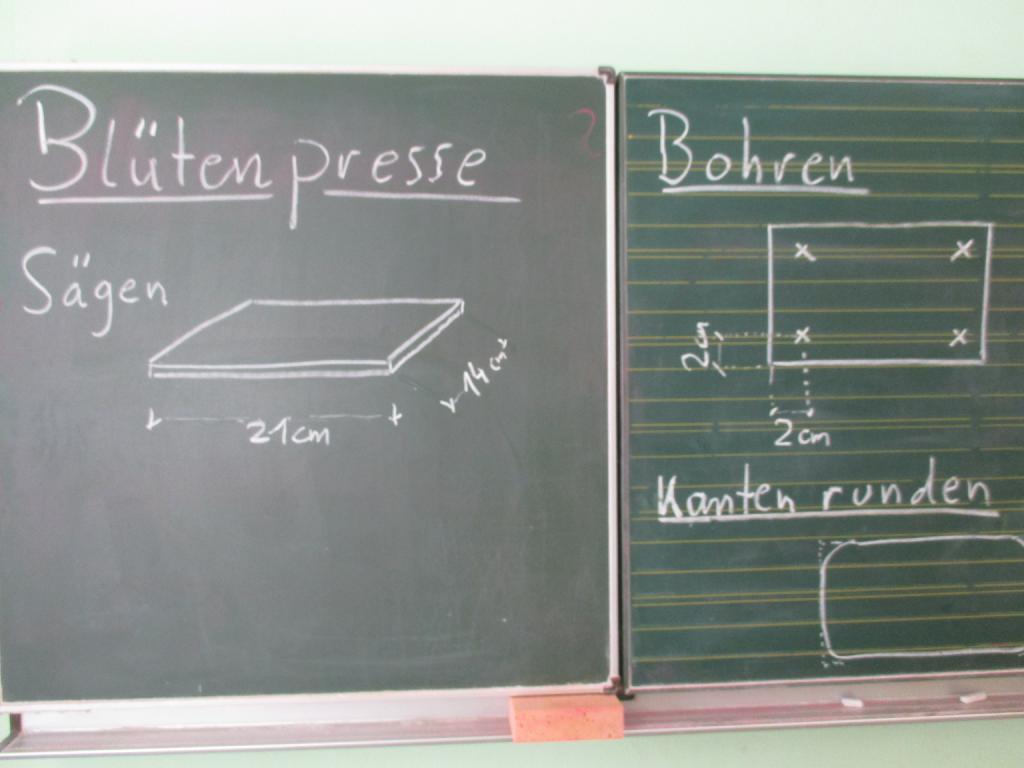 Blütenpresse
Sägen
21cm
14cm²
Bohren
x x
x x
2cm
2cm
Kanten runden